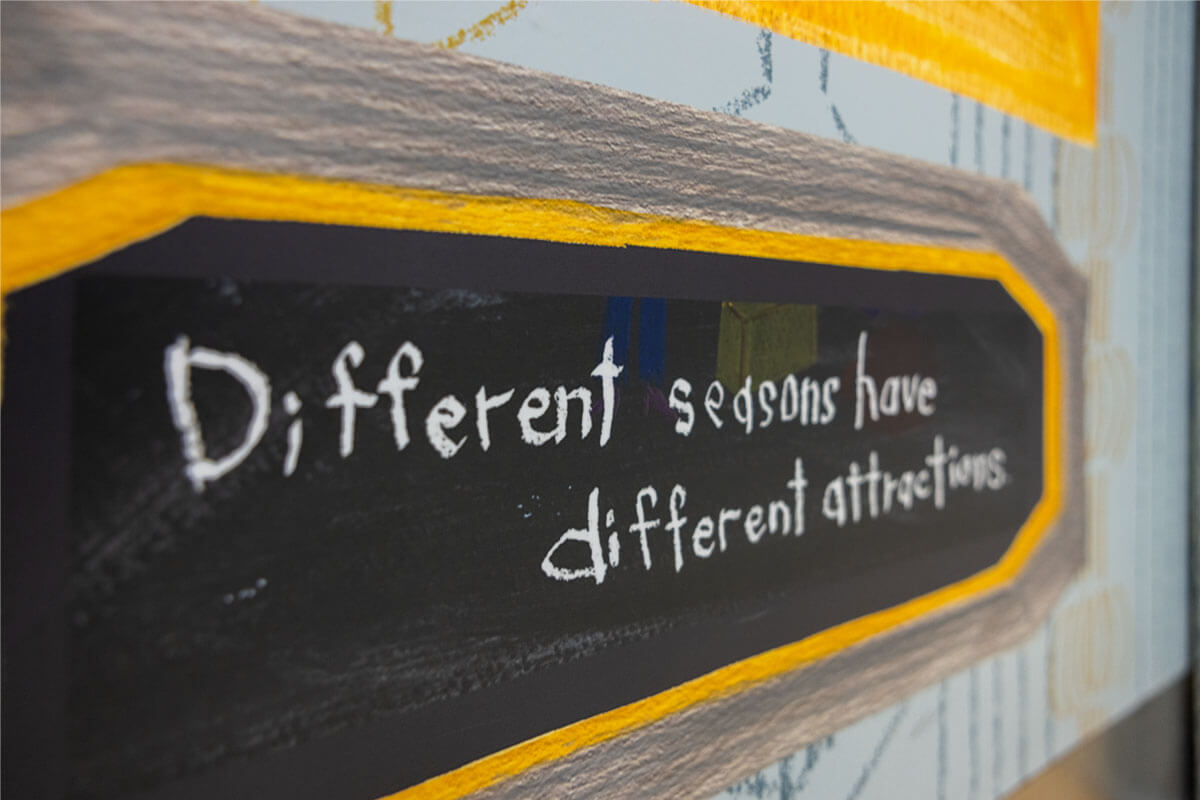 Different seasons have
different attractions.